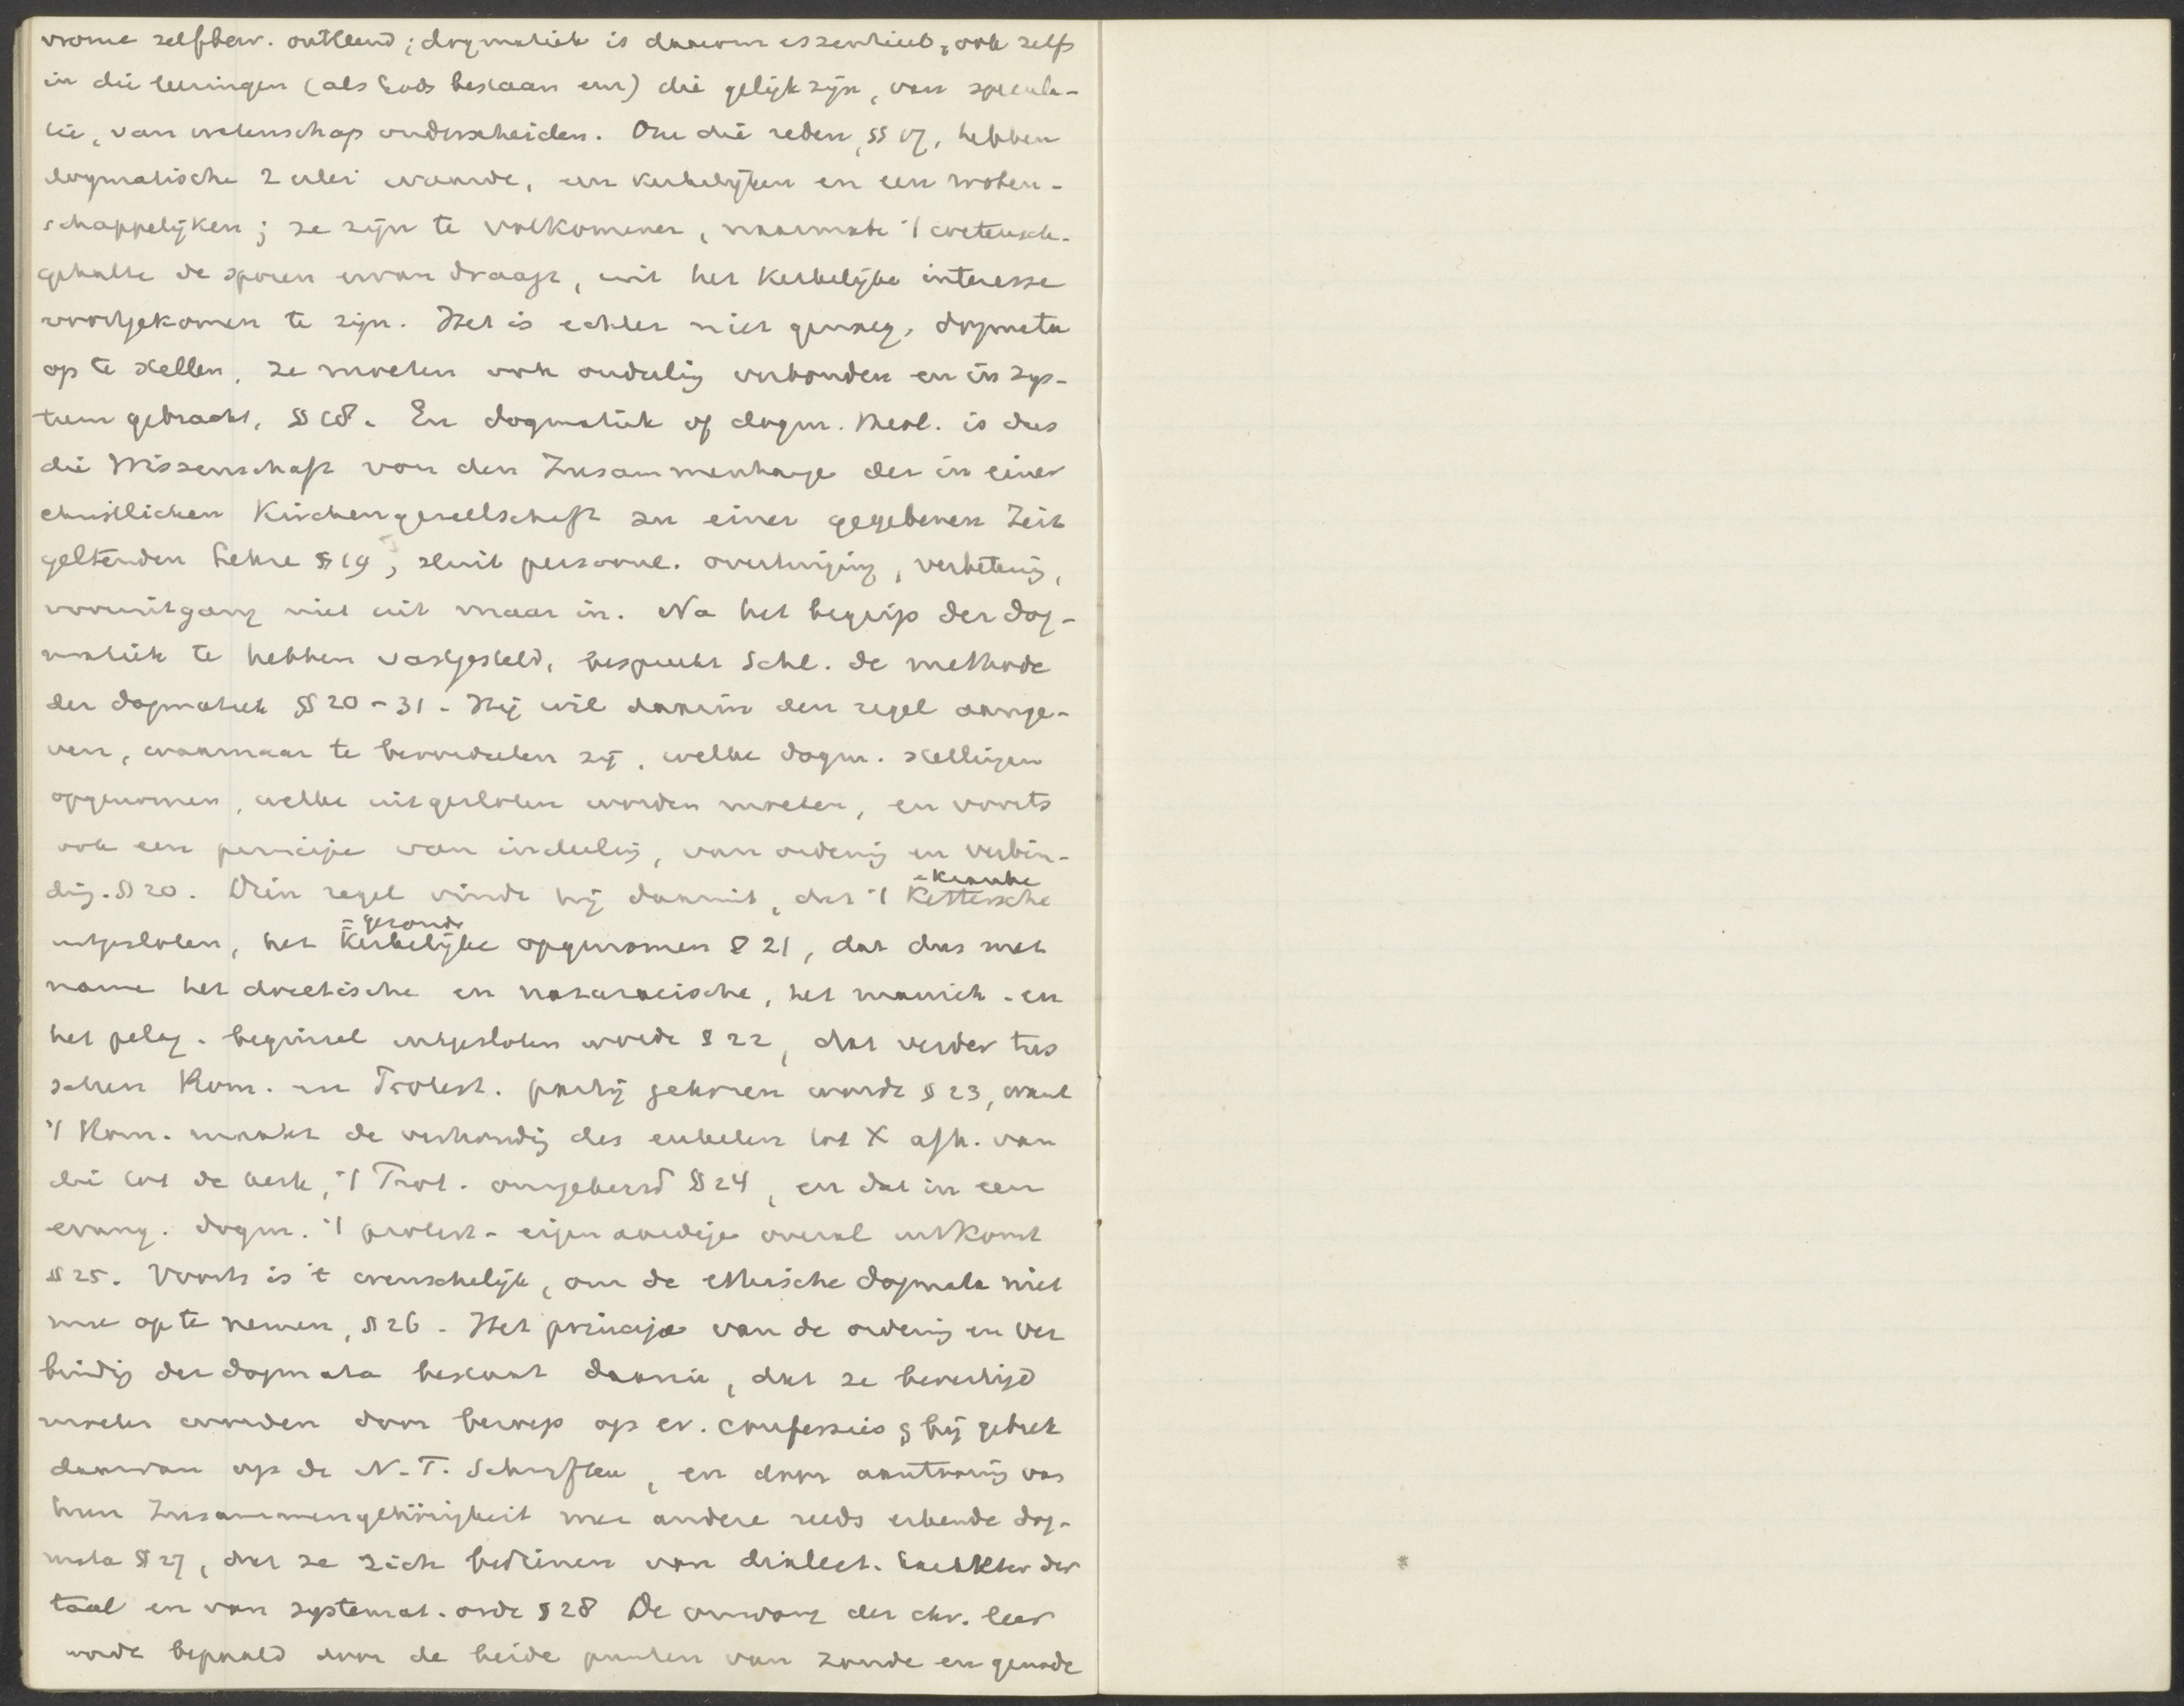 vrome zelfbew. ontleend; dogmatiek is daarom essentieel, ook zelfs
in die leeringen (als Gods bestaan enz) die gelijk zijn, van specula-
tie, van wetenschap onderscheiden. Om die reden, §§ 17, hebben
dogmatische 2 erlei waarde, een kerkelijken en een weten-
schappelijken; ze zijn te volkomener, naarmate 't wetensch.
gehalte de sporen ervan draagt, uit het kerkelijke interesse
voortgekomen te zijn. Het is echter niet genoeg, dogmata
op te stellen, ze moeten ook onderling verbonden en in sys-
teem gebracht, § 18. En dogmatiek of dogm. theol. is dus
die Wissenschaft von den Zusammenhange der in einer
christlichen Kirchengesellschaft zu einer gegebenen Zeit
geltenden Lehre § 19; sluit persoonl. overtuiging, verbetering,
vooruitgang niet uit maar in. Na het begrip der dog-
matiek te hebben vastgesteld, bespreekt Schl. de methode
der dogmatiek §§ 20-31. Hij wil daarin den regel aange-
ven, waarnaar te beoordeelen zij, welke dogm. stellingen
opgenomen, welke uitgesloten worden moeten, en voorts
ook een principe van indeeling, van ordening en verbin-
ding. § 20. Dien regel vindt hij daarin, dat 't Kettersche
= kranke
uitgesloten, het Kerkelijke opgenomen § 21, dat dus met
= gezonde
name het docetische en nazaraeische, het manich. en
het pelag. beginsel uitgesloten wordt § 22, dat verder tus
schen Rom. en Protest. partij gekozen worde § 23, want
't Rom. maakt de verhouding des enkelen tot X afh. van
die tot de kerk, 't Prot. omgekeerd § 24, en dat in een
evang. dogm. 't protest. eigenaardige overal uitkomt
§ 25. Voorts is 't wenschelijk, om de ethische dogmata niet
mee op te nemen, § 26. Het principe van de ordening en ver
binding der dogmata bestaat daarin, dat ze bevestigd
moeten worden door beroep op ev. confessies & bij gebrek
daarvan op de N.T. Schriften, en door aantooning van
hun Zusammengehörigkeit met andere reeds erkende dog-
mata § 27, dat ze zich bedienen van dialect. karakter der
taal en van systemat. orde § 28 De omvang der chr. leer
wordt bepaald door de beide punten van zonde en genade